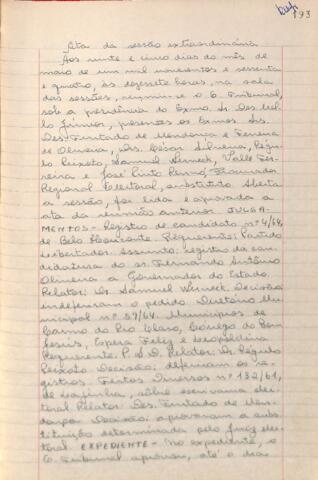 193
Ata da sessão extraordinária
Aos vinte e cinco dias do mês de
maio de um mil novecentos e sessenta
e quatro, às dezessete horas, na sala
das sessões, reuniu-se o E. Tribunal,
sob a presidência do Exmo. Sr. Des. Mel-
lo Júnior, presentes os Exmos. Srs.
Des. Furtado de Mendonça e Ferreira
de Oliveira, Drs. César Silveira, Régu-
lo Peixoto, Samuel Werneck, Valle Fer-
reira e José Pinto Renno, Procurador
Regional Eleitoral, substituto. Aberta
a sessão, foi lida e aprovada a
ata da reunião anterior. JULGA-
MENTOS - Registro de candidato nº 4/64,
de Belo Horizonte. Requerente: Partido
Libertador. Assunto: registro da can-
didatura do sr. Fernando Antônio
Oliveira a Governador do Estado.
Relator: Dr. Samuel Werneck. Decisão:
indeferiram o pedido. Diretório Mu-
nicipal nº 59/64. Municípios de
Carmo do Rio Claro, Córrego do Bom
Jesus, Espera Feliz e Leopoldina.
Requerente: P.S.D. Relator: Dr. Régulo
Peixoto. Decisão: deferiram os re-
gistros. Feitos Diversos nº 132/61,
de sôbre escrivania elei-
toral. Relator: Des. Furtado de Men-
donça. Decisão: aprovaram a subs-
tituição determinada pelo juiz elei-
toral. EXPEDIENTE - No expediente, o
E. Tribunal aprovou, até o dia